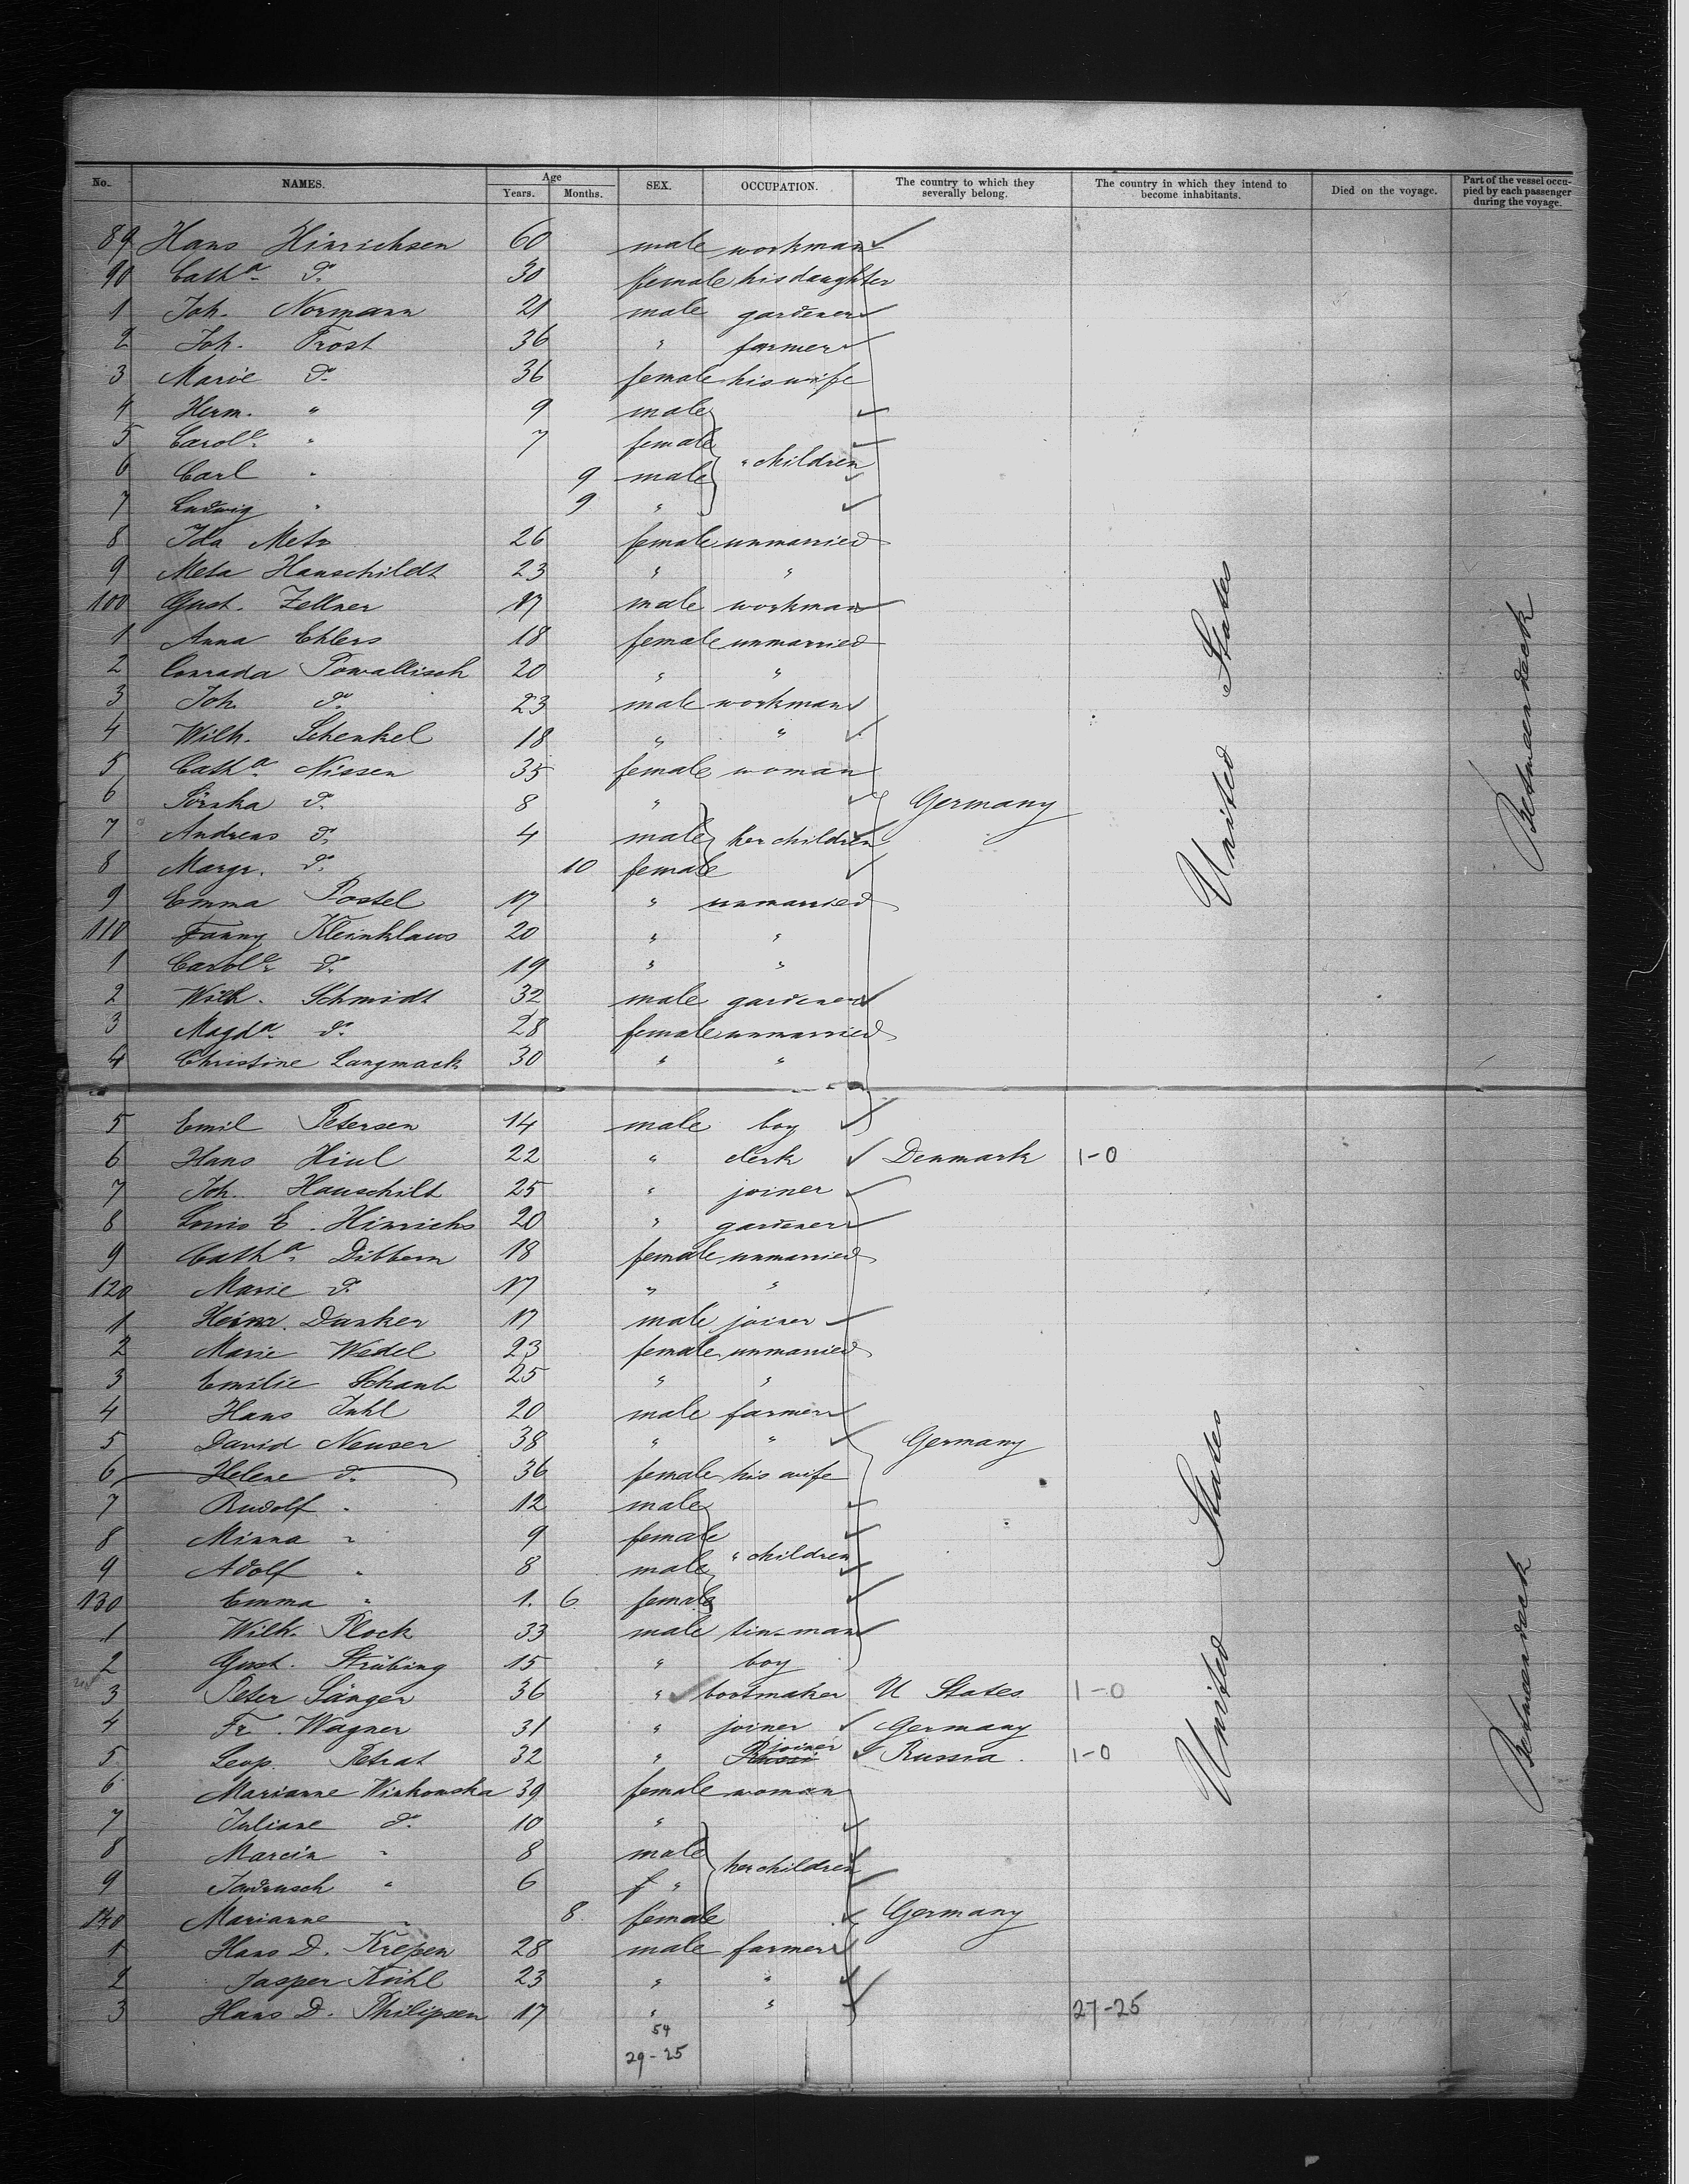 No. NAMES. Age Years. Months. SEX. OCCUPATION. The country to which they severally belong. The country in which they intend to become inhabitants. Died on the voyage. Part of the vessel occupied by each passenger during the voyage.
89 Hans Hinrichsen 60 male workman
90 Cath.a do. 30 female his daughter
1 Joh. Normann 21 male gardener
2 Joh. Frost 36 " farmer
3 Marie do. 36 female his wife
4 Herm. " 9 male
5 Carol.e " 7 female
6 Carl " 9 male " children
7 Ludwig " 9 "
8 Ida Metz 26 female unmarried
9 Meta Hauschildt 23 " "
100 Gust. Zellner 17 male workman
1 Anna Ehlers 18 female unmarried
2 Conrada Powallisch 20 " "
3 Joh. do. 23 male workman
4 Wilh. Schenkel 18 " "
5 Cath.a Nissen 35 female woman
6 do. 8 " Germany
7 Andreas do. 4 male her children
8 Margr. do. 10 female
9 Emma Postel 17 " unmarried
110 Fanny Kleinklaus 20 " "
1 Carol.e do. 19 " "
2 Wilh. Schmidt 32 male gardener
3 Magd.a do. 28 female unmarried
4 Christine Langmack 30 " "
United States
Between deck
5 Emil Petersen 14 male boy
6 Hans 22 " clerk Denmark 1-0
7 Joh. Hauschilt 25 " joiner
8 Louis E. Hinrichs 20 " gardener
9 Cath.a Dibbern 18 female unmarried
120 Marie do. 17 " "
1 Heinr. Dunker 17 male joiner
2 Marie Wedel 23 female unmarried
3 Emilie Schaub 25 " "
4 Hans Juhl 20 male farmer
5 David Neuser 38 " " Germany
6 Helene do. 36 female his wife
7 Rudolf " 12 male
8 Minna " 9 female
9 Adolf " 8 male " children
130 Emma " 1. 6 female
1 Wilh. Plock 33 male tin-man
2 Gust. Strübing 15 " boy
3 Peter Sänger 36 " bootmaker U States 1-0
4 Fr. Wagner 31 " joiner Germany
5 Leop. Petrat 32 " joiner Russia. 1-0
6 Marianne Winkowska 39 female woman
7 Juliane do. 10 "
8 Marcin " 8 male her children
9 6 f "
140 Marianne " 8 female Germany
1 Hans D. Krepen 28 male farmer
2 Jasper Kühl 23 " "
3 Hans D. Philipsen 17 " " 27-25
United States
Between deck
54
29-25